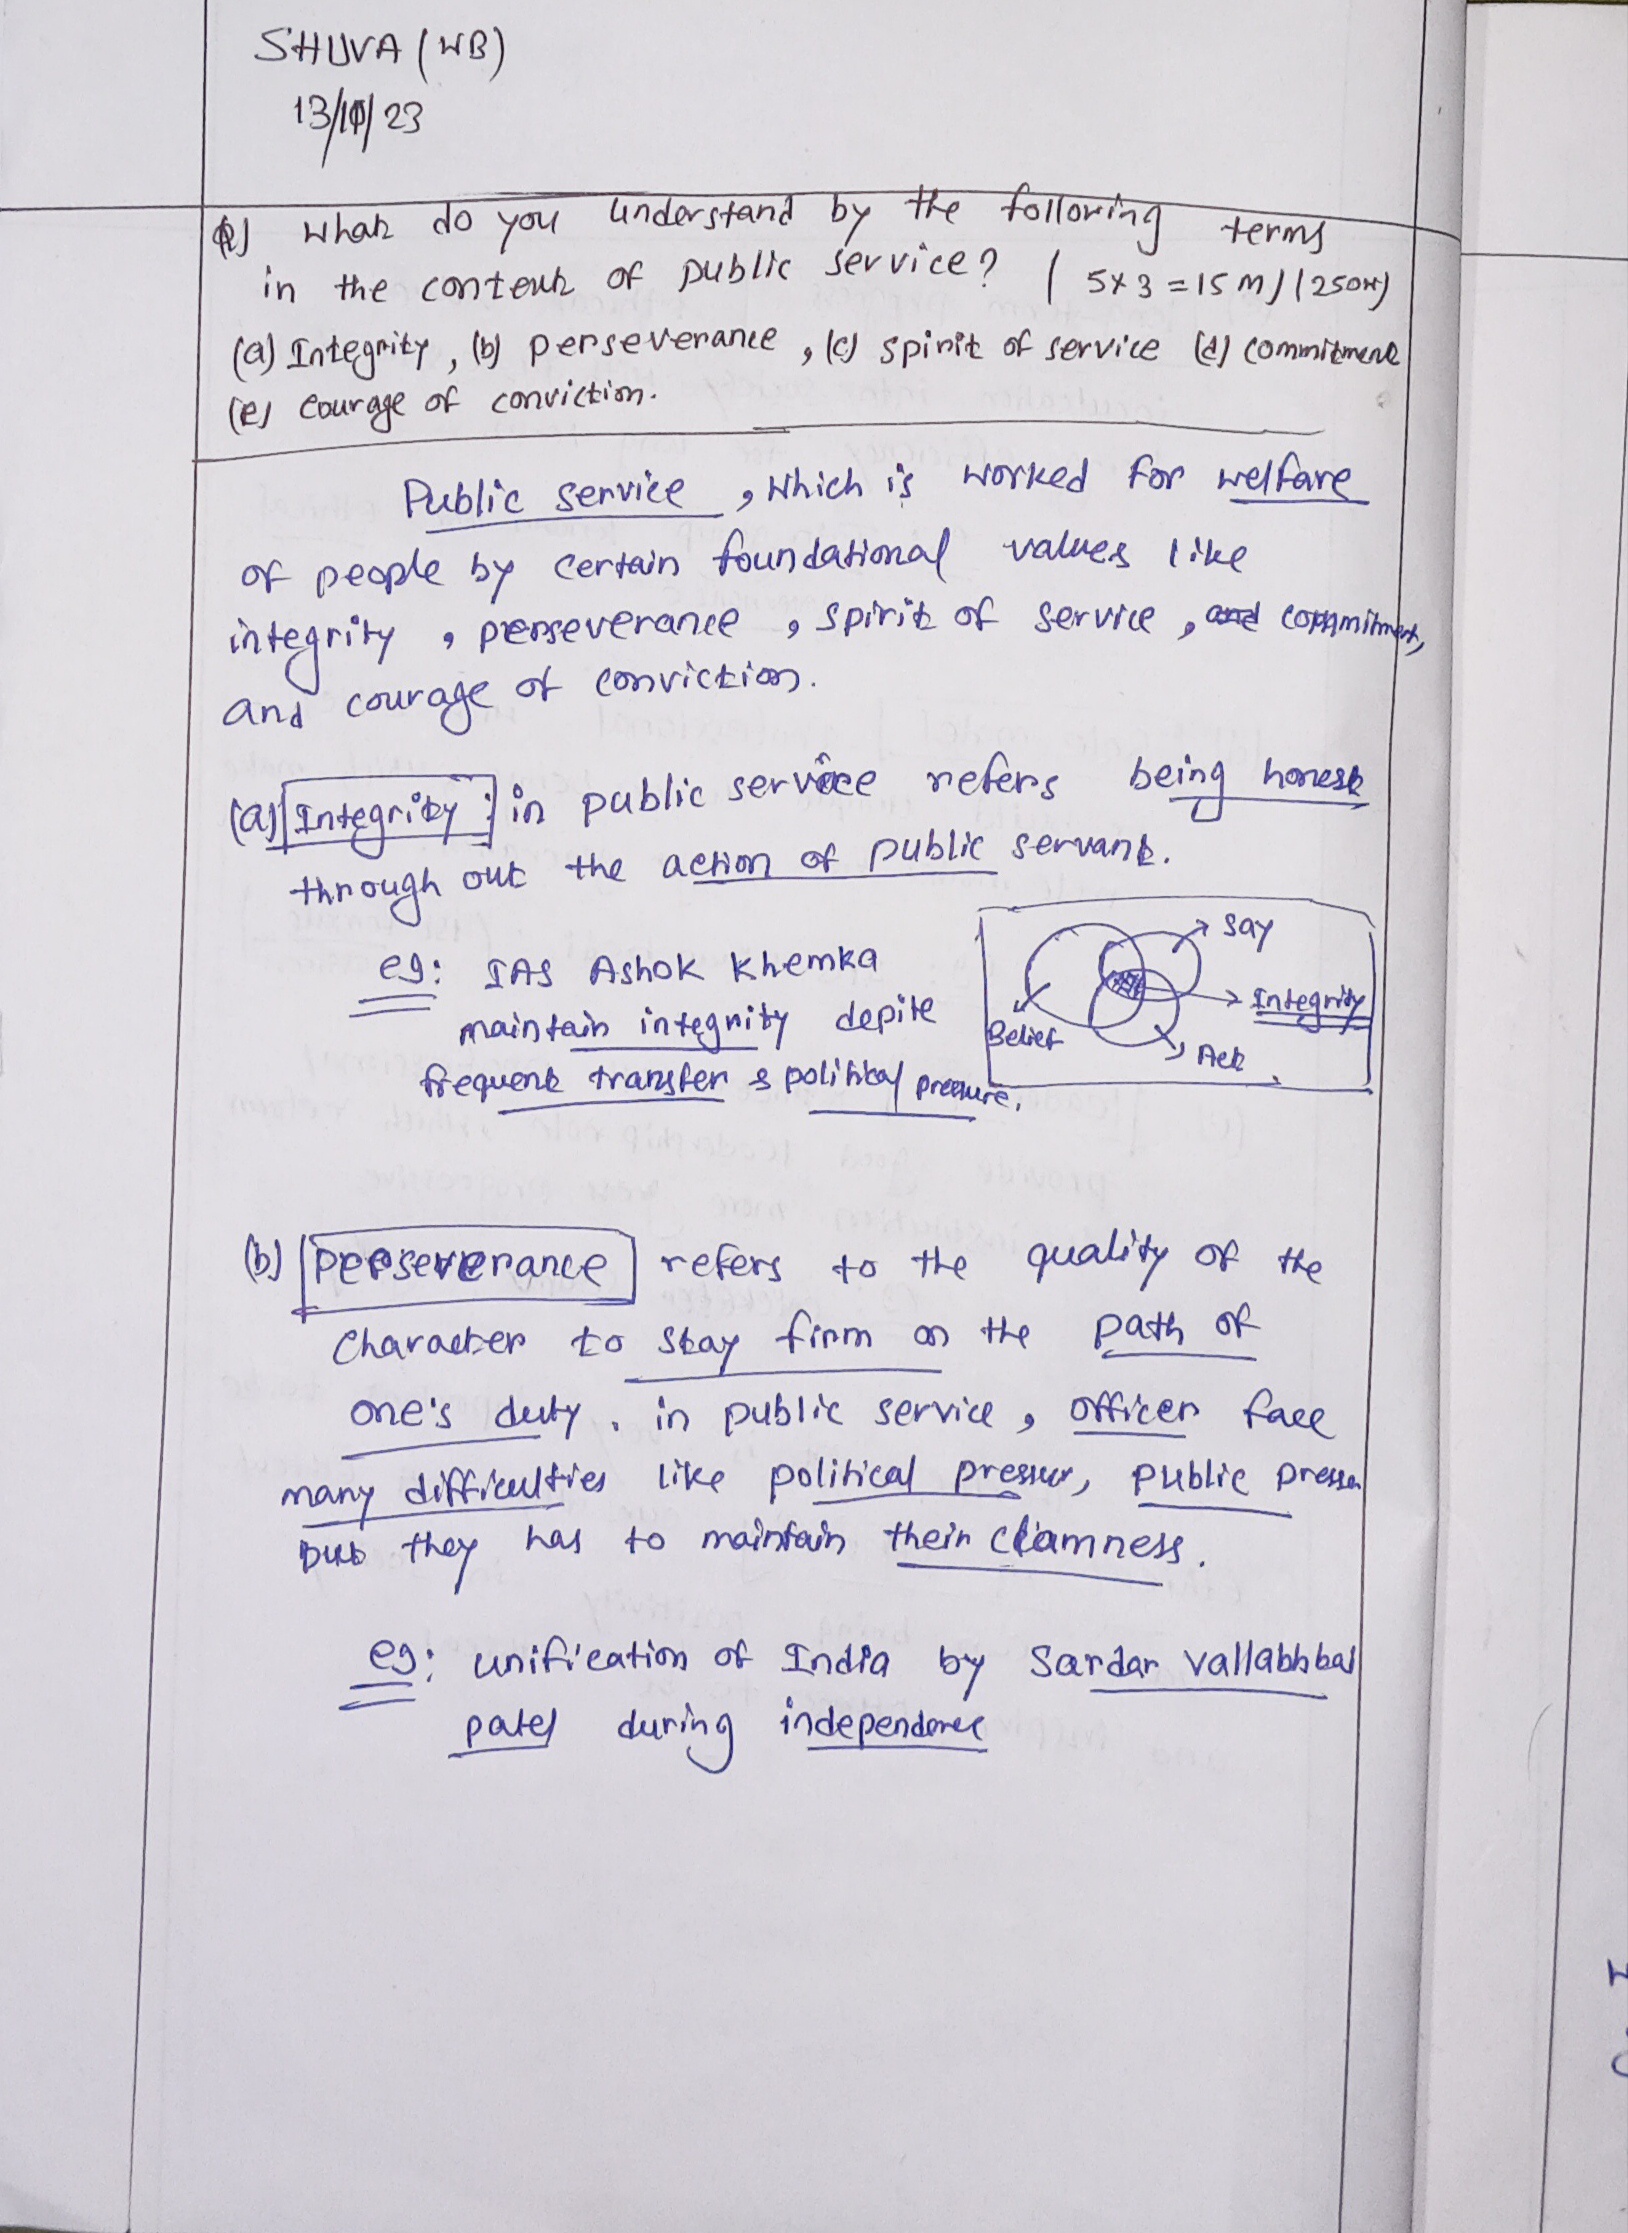 SHUVA (WB)
13/10/23
Q) What do you understand by the following terms
in the context of public service? (5x3=15M) (250W)
(a) Integrity, (b) perseverance, (c) spirit of service (d) commitment
(e) courage of conviction.
Public service, which is worked for welfare
of people by certain foundational values like
integrity, perseverance, spirit of service, and commitment,
and courage of conviction.
(a) Integrity: in public service refers being honest
through out the action of public servant.
eg: IAS Ashok Khemka
maintain integrity depite
frequent transfer & political pressure.
Say
Integrity
Belief
Act
(b) Perseverance refers to the quality of the
character to stay firm on the path of
one's duty. in public service, officer face
many difficulties like political pressur, public
but they has to maintain their
eg: unification of India by Sardar vallabhbai
patel during independence